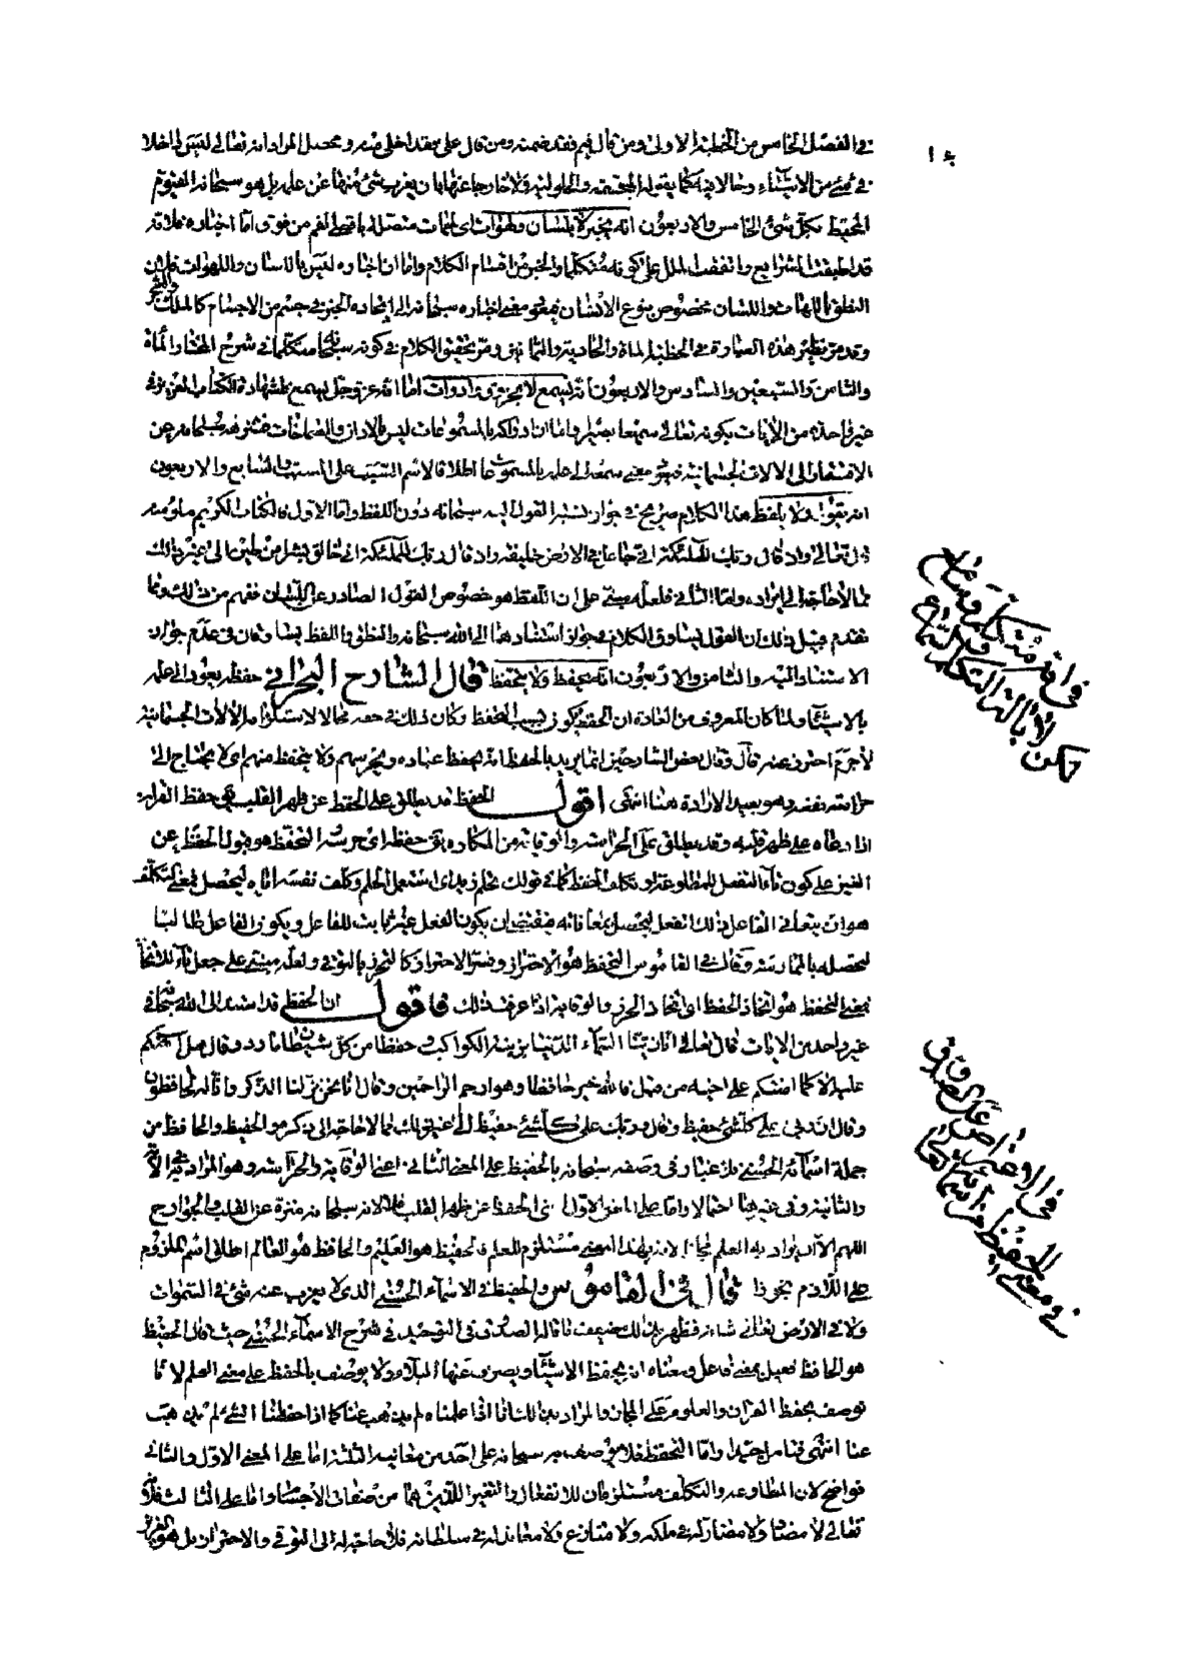 في الفصل الخامس من الخطبة الاولى ومن قال فيم فقد ضمنه ومن قال على م فقد اخلى منه ومحصل المراد انه تعالى ليس داخلا
في شيء من الاشياء وحالا فيه كما يقوله المجسمة والحلولية ولا خارجا عنها بان يعزب شيء منها عن علمه بل هو سبحانه القيوم
المحيط بكل شيء الخامس والاربعون انه يخبر لا بلسان ولهوات اى لحمات متصلة باقصى الفم من فوق اما اخباره فلانه
قد اطبقت الشرايع واتفقت الملل على كونه متكلما والخبر من اقسام الكلام واما ان اخباره ليس باللسان واللهوات فلان
النطق باللهات واللسان مخصوص بنوع الانسان فمعنى اخباره سبحانه الى ايجاده الخبر في جسم من الاجسام كالملك والشجر
وقد مر نظير هذه العبارة في الخطبة المأة والحادية والثمانين ومر تحقيق الكلام في كونه سبحانه متكلما في شرح المختار المأة
والثامن والسبعين والسادس والاربعون انه يسمع لا بخروق وادوات اما انه عز وجل يسمع فلشهادة الكتاب العزيز في
غير واحدة من الآيات بكونه تعالى سميعا بصيرا واما ان ادراكه بالمسموعات ليس بالاذان والصماخات فلتنزهه سبحانه عن
الافتقار الى الآلات الجسمانية فهو معنى سمعه الى علمه بالمسموعات اطلاقا لاسم السبب على المسبب والسابع والاربعون
انه يقول ولا يلفظ هذا الكلام صريح في جواز نسبة القول اليه سبحانه دون اللفظ واما الاول فالكتاب الكريم مملو منه
قال تعالى واذ قال ربك للملئكة اني جاعل في الارض خليفة واذ قال ربك للملئكة انى خالق بشرا من طين الى غير ذلك
مما لا حاجة الى ايراده واما الثاني فلعله مبني على ان اللفظ هو خصوص القول الصادر عن اللسان فيفهم من ذلك ومما
تقدم قبيل ذلك ان القول يساوق الكلام في جواز استنادهما الى الله سبحانه والنطق واللفظ يتساوقان في عدم جواز
الاستناد اليه والثامن والاربعون انه يحفظ ولا يتحفظ قال الشارح البحراني حفظه يعود الى علمه
بالاشياء ولما كان المعروف من العادة ان الحفظ يكون بسبب التحفظ وكان ذلك في حقه محالا لاستلزامه الآلات الجسمانية
لاجرم احترز عنه قال وقال بعض الشارحين انما يريد بالحفظ انه يحفظ عباده ويحرسهم ولا يتحفظ منهم اى لا يحتاج الى
حراسة نفسه وهو بعيد الارادة هنا انتهى اقول الحفظ قد يطلق على الحفظ عن ظهر القلب يق حفظ القرآن
اذا وعاه على ظهر قلبه وقد يطلق على الحراسة والوقاية من المكاره يق حفظه اى حرسه والتحفظ هو قبول الحفظ عن
الغير على كون تاء التفعل للمطاوعة او تكلف الحفظ كما في قولك تحلم زيد اى استعمل الحلم وكلف نفسه اياه ليحصل فمعنى التكلف
هو ان يتعانى الفاعل ذلك الفعل ليحصل بمعاناته فيقتضى ان يكون الفعل غير ثابت للفاعل ويكون الفاعل طالبا
لتحصله بالممارسة وقال في القاموس التحفظ هو الاحتراز وفسر الاحتراز كالتحرز بالتوقي ولعله مبني على جعل تاء للاتخاذ
فمعنى التحفظ هو اتخاذ الحفظ اى اتخاذ الحرز والوقاية اذا عرفت ذلك فاقول ان الحفظ قد اسند الى الله سبحانه في
غير واحد من الآيات قال تعالى انا زينا السماء الدنيا بزينة الكواكب وحفظا من كل شيطان مارد وقال هل آمنكم
عليه الا كما امنتكم على اخيه من قبل فالله خير حافظا وهو ارحم الراحمين وقال انا نحن نزلنا الذكر وانا له لحافظون
وقال ان ربي على كل شيء حفيظ وقال وربك على كل شيء حفيظ الى غير ذلك مما لا حاجة الى ذكره والحفيظ والحافظ من
جملة اسمائه الحسنى فلا غبار في وصفه سبحانه بالحفيظ على المعنى الثاني اعنى الوقاية والحراسة وهو المراد في الآية
والثانية وفي غيرهما احتمالا واما على المعنى الاول اى الحفظ عن ظهر القلب فلا لانه سبحانه منزه عن القلب والجوارح
اللهم الا ان يراد به العلم مجازا لانه بهذا المعنى مستلزم للعلم فالحفيظ هو العليم والحافظ هو العالم اطلاق اسم الملزوم
على اللازم تجوزا قال في القاموس والحفيظ في الاسماء الحسنى الذى لا يعزب عنه شئ في السموات
ولا في الارض تعالى شانه فظهر بذلك ضعف ما قاله الصدوق في التوحيد في شرح الاسماء الحسنى حيث قال الحفيظ
هو الحافظ فعيل بمعنى فاعل ومعناه انه يحفظ الاشياء ويصرف عنها البلاء ولا يوصف بالحفظ على معنى العلم لانا
نوصف بحفظ القرآن والعلوم على المجاز والمراد بذلك انا اذا علمناه لم يذهب عنا كما اذا حفظنا الشئ لم يذهب
عنا انتهى فتامل جيدا واما التحفظ فلا يوصف به سبحانه على احد من معانيه الثلثة اما على المعنى الاول والثاني
فواضح لان المطاوعة والتكلف مستلزمان للانفعال والتغير اللذين هما من صفات الاجسام واما على الثالث فلانه
تعالى لا مضاد ولا مضار له في ملكه ولا منازع ولا معاند له في سلطانه فلا حاجة له الى التوقي والاحتراز بل هو العزيز
في انه متكلم وسامع
لكن لا بالة التكلم
في الاعتراض على الصدوق
في معنى الحفيظ من اسمائه تعالى